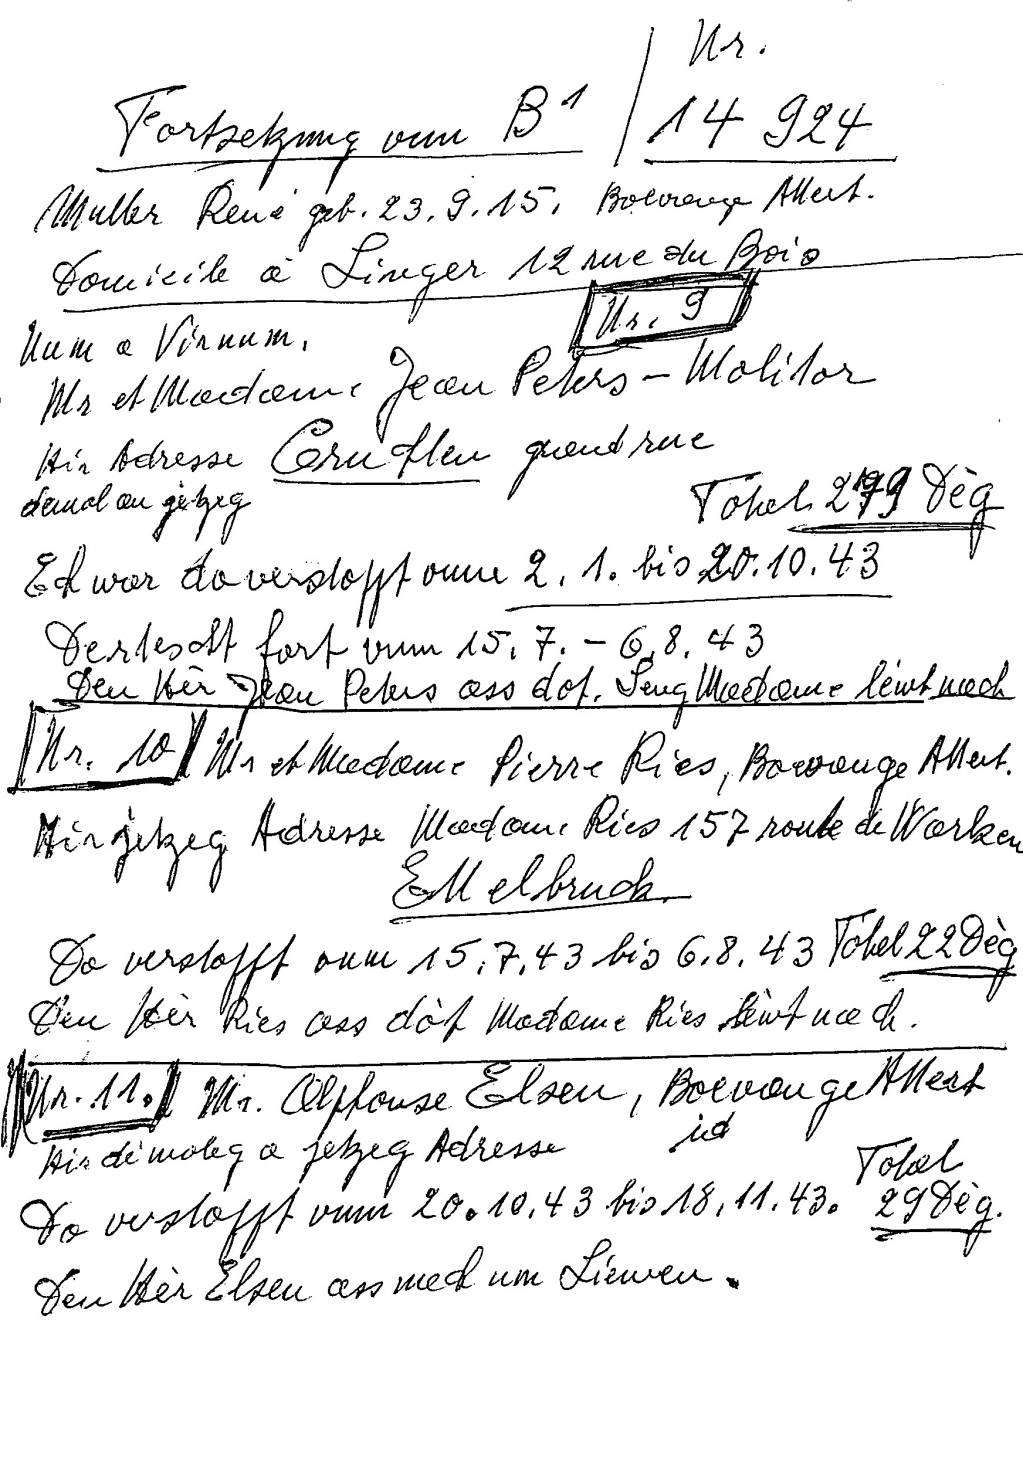 Nr.
Fortsetzung vum B1 / 14 924
Muller René geb. 23.9.15. Boevange Attert.
Domicile à Linger 12 rue du Bois
Nr. 9
Num a Virnum.
Mr et Madame Jean Peters – Molitor
Hir Adresse Cruchten grand rue
demol an jetzeg
Total 279 Dèg
Ech war do verstoppt vum 2.1. bis 20.10.43
Derlescht fort vum 15.7. – 6.8.43
Den Hèr Jean Peters ass dot. Seng Madame lèwt nach
Nr. 10 Mr et Madame Pierre Ries, Boevange Attert.
Hir jetzeg Adresse Madame Ries 157 route de Warken
Ettelbruck
Do verstoppt vum 15.7.43 bis 6.8.43 Total 22 Dèg
Den Hèr Ries ass dòt Madame Ries lèwt nach.
Nr. 11. Mr. Alphonse Elsen, Boevange Attert
Hir dèmoleg a jetzeg Adresse id
Total
Do verstoppt vum 20.10.43 bis 18.11.43. 29 Dèg.
Den Hèr Elsen ass nach um Liewen.